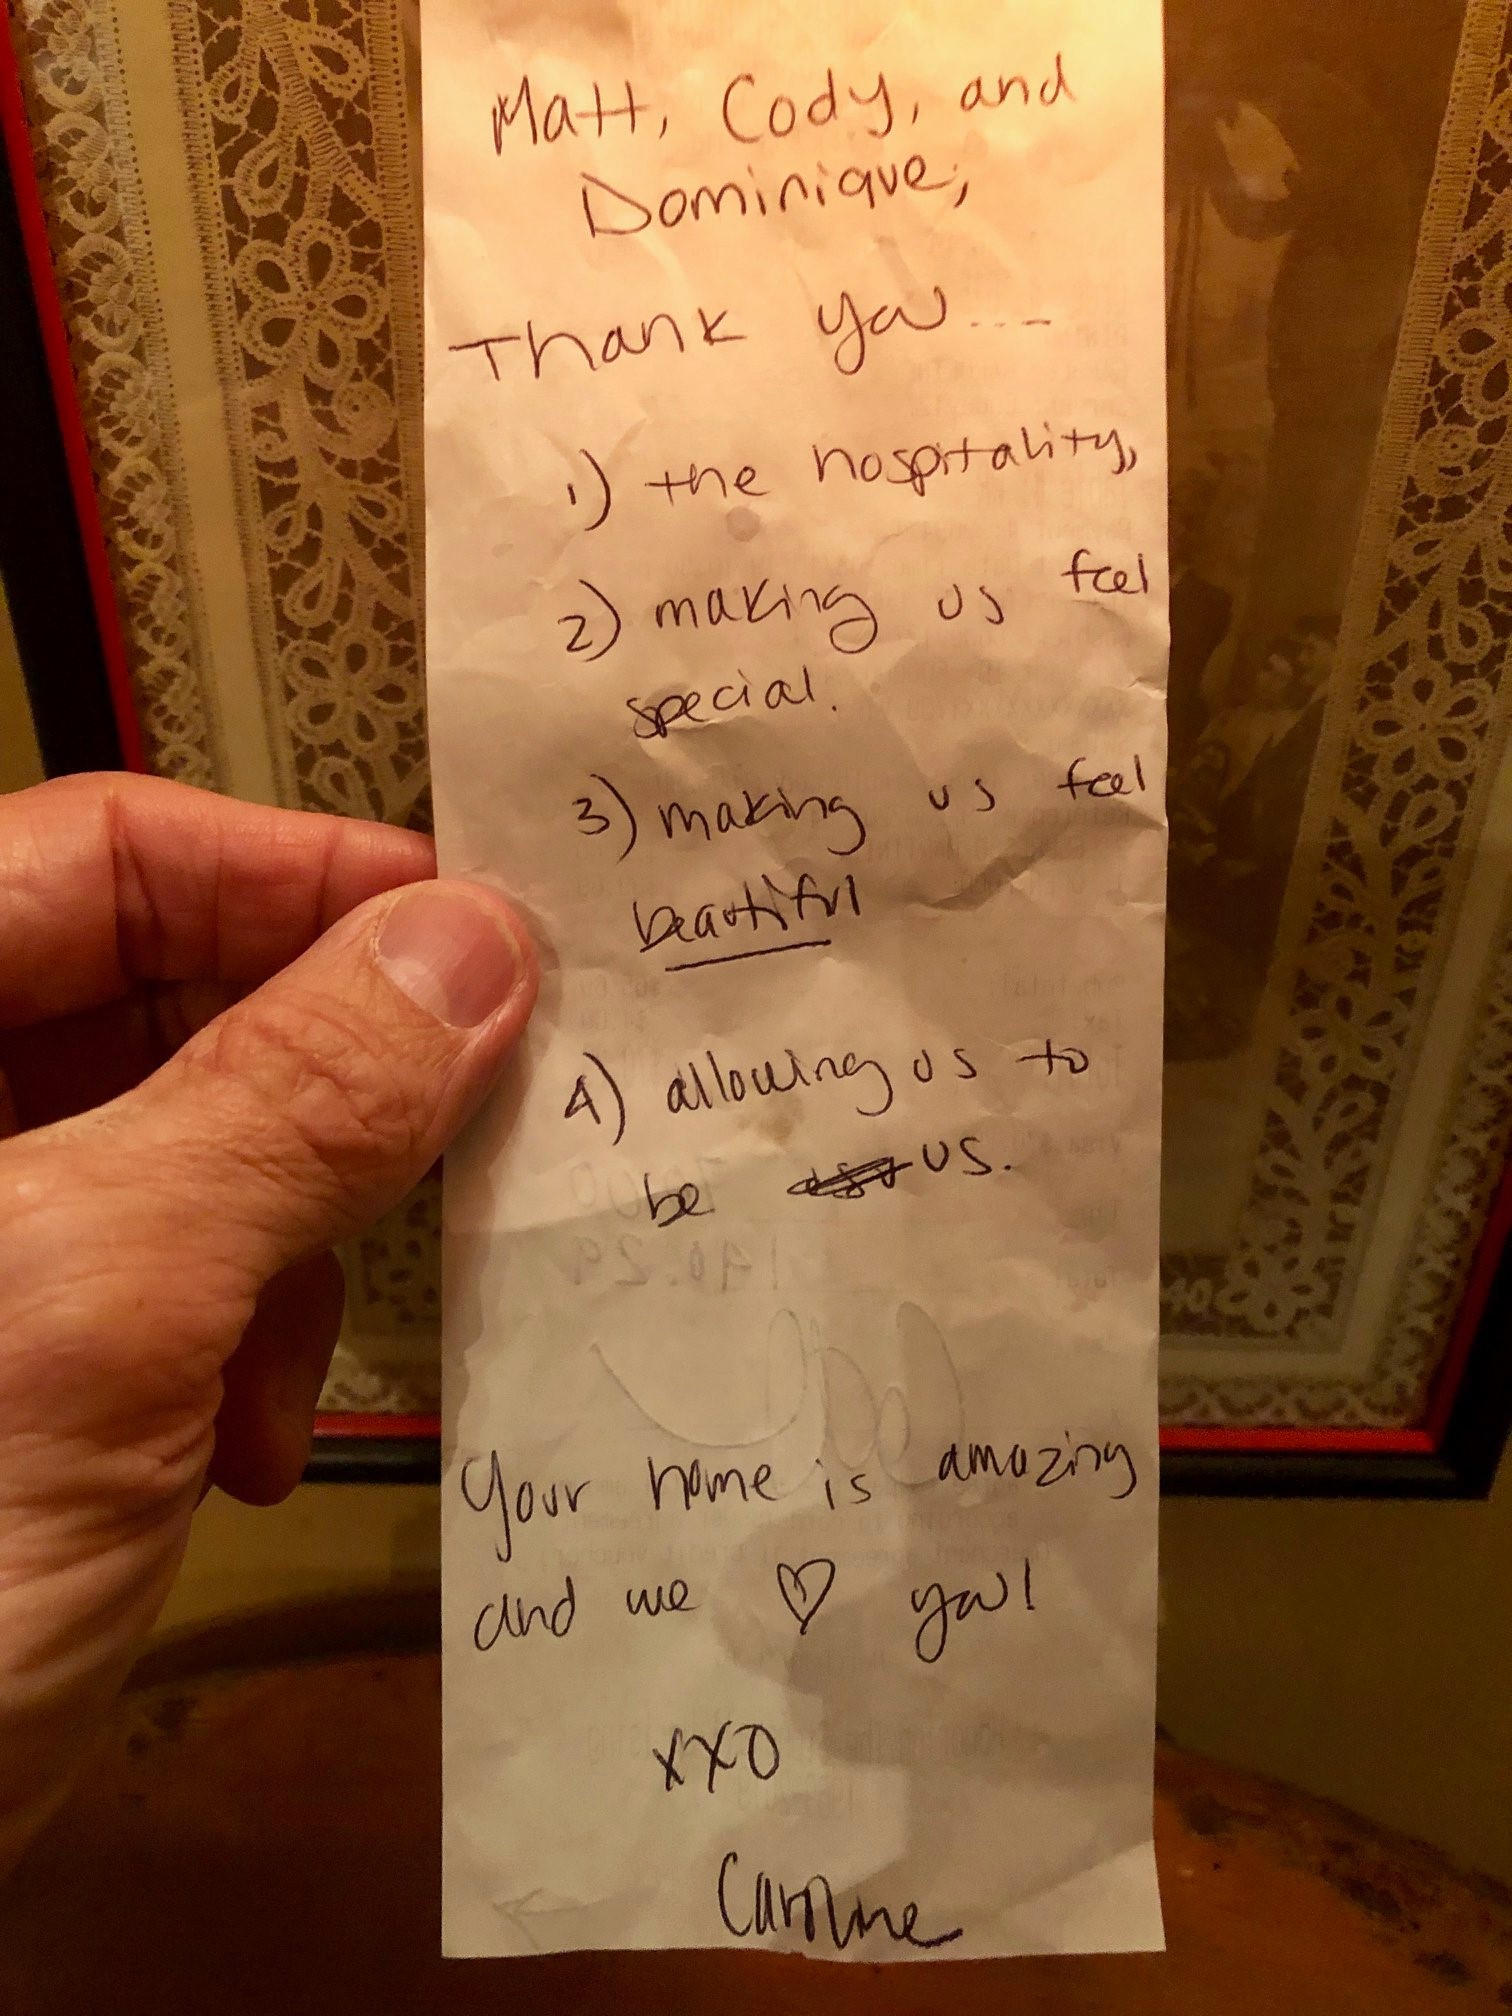 Matt, Cody, and
Dominique,
Thank you ...-
1) the hospitality,
2) making us feel
special.
3) making us feel
beautiful
4) allowing us to
be us.
Your home is amazing
and we ♡ you!
xxo
Caroline